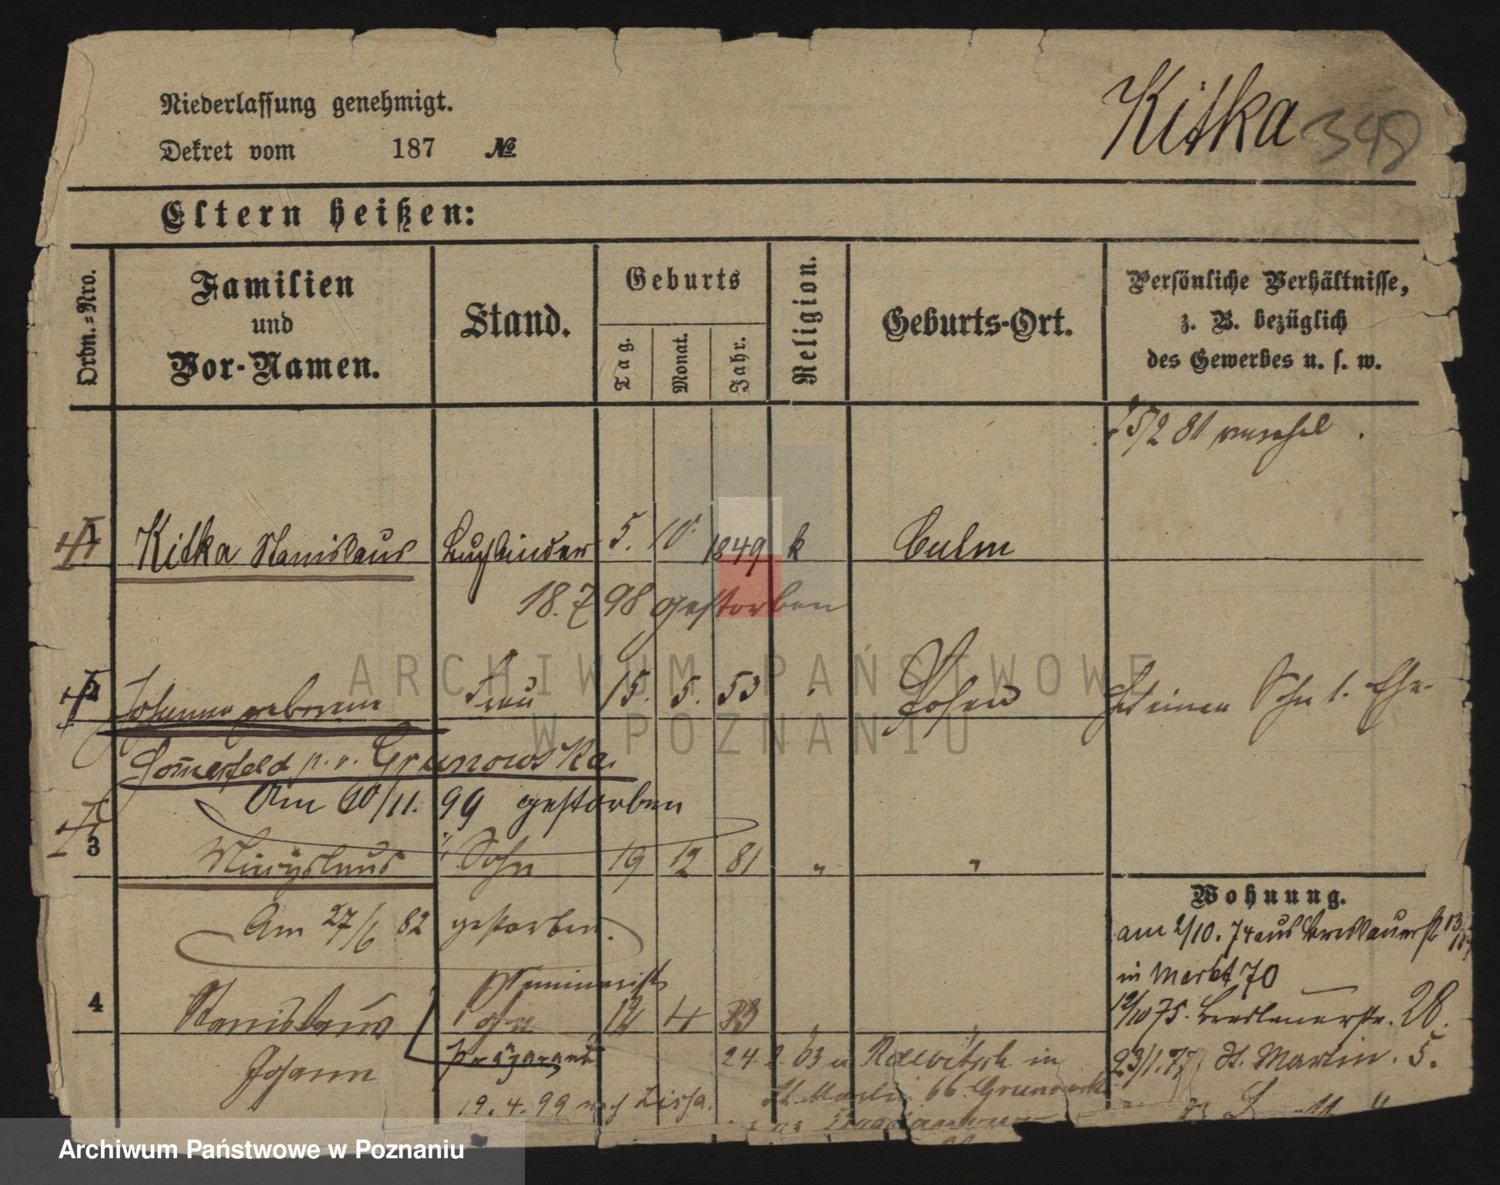 Niederlassung genehmigt.
Kitka 348
Dekret vom 187 №
Eltern heißen:
Ordn.-Nro.
Familien und Vor-Namen.
Stand.
Geburts
Tag.
Monat.
Jahr.
Religion.
Geburts-Ort.
Persönliche Verhältnisse,
z. B. bezüglich
des Gewerbes u. s. w.
15/2 81
1 Kitka Stanislaus Buchbinder 5. 10. 1849 k Culm
18.7.98 gestorben
2 Johanna geborene Frau 15. 5. 53 " Posen
Hat einen Sohn
Sommerfeld p. v. Grunowska.
Am 10/11. 99 gestorben
3 Miecislaus Sohn 19 12 81 " "
Am 27/6 82 gestorben.
Wohnung.
am 2/10. 74 aus Breslauerstr 13/14
in Markt 70
4 Stanislaus Sohn 12 4 83
Seminarist
12/10 75. Breslauerstr. 28.
Johann Präparand
24 2. 03 u Rawitsch in
23/1.77 St. Martin. 5.
19. 4. 99 nach Lissa.
St. Martin 66 Grunowska
ARCHIWUM PAŃSTWOWE
W POZNANIU
Archiwum Państwowe w Poznaniu